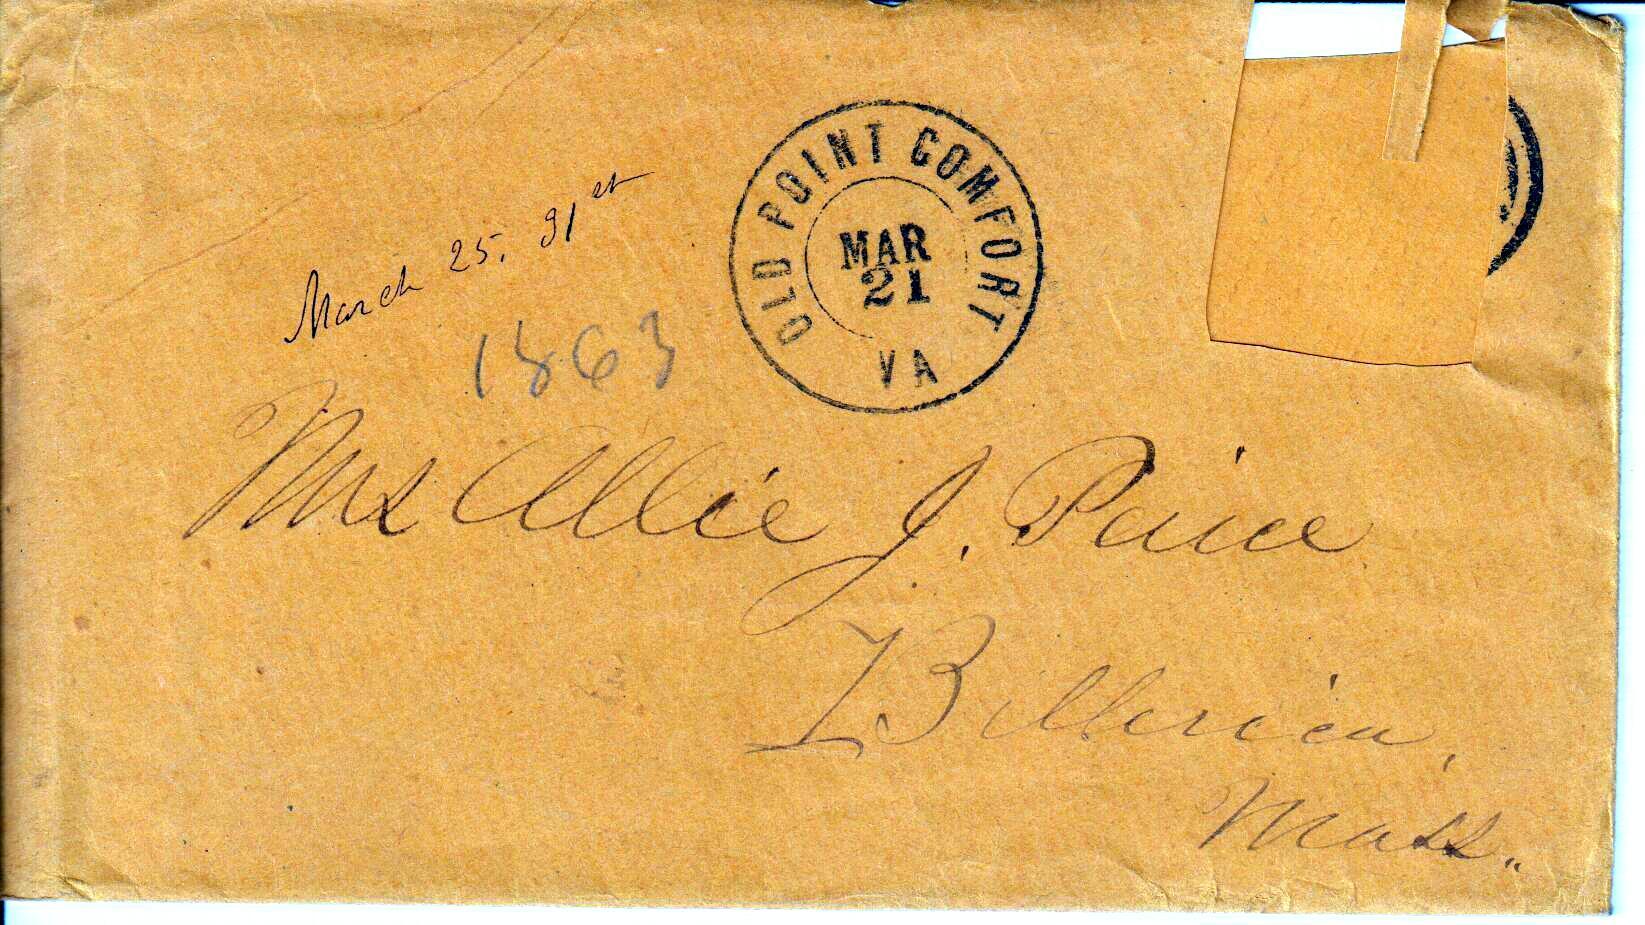 OLD POINT COMFORT
MAR
21
VA
March 25. 31st
1863
Mrs Allie J. Paice
Billerica,
Mass.